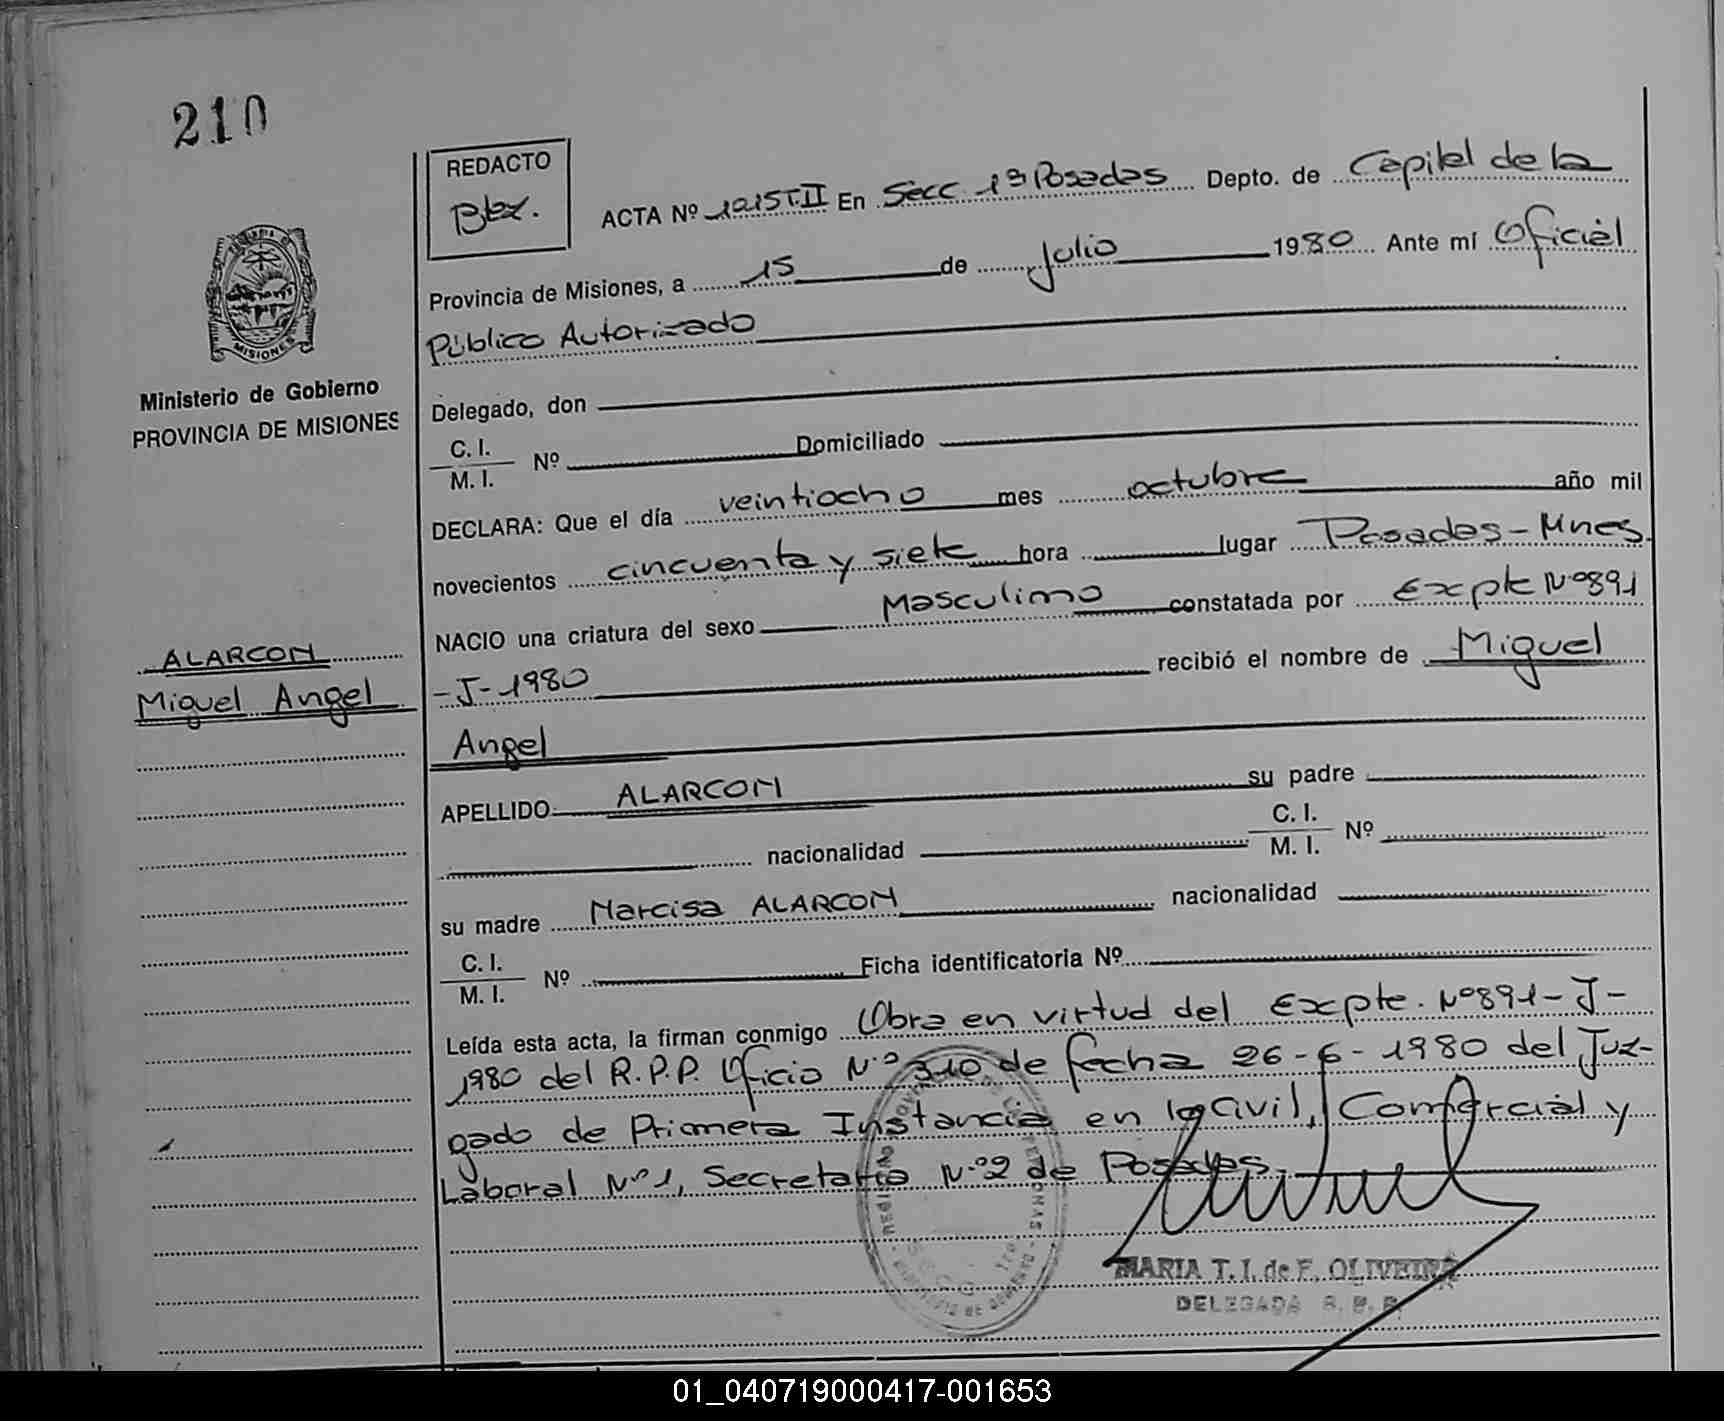 210
REDACTO
Bez.
ACTA Nº 1215T.II En Secc 1ª Posadas Depto. de Capital de la
Provincia de Misiones, a 15 de Julio 1980 Ante mí Oficial
Público Autorizado
MISIONES
Ministerio de Gobierno
PROVINCIA DE MISIONES
Delegado, don
C. I.
M. I. Nº Domiciliado
DECLARA: Que el día veintiocho mes octubre año mil
novecientos cincuenta y siete hora lugar Posadas-Mnes.
NACIO una criatura del sexo Masculino constatada por Expte Nº891
-J-1980 recibió el nombre de Miguel
Angel
ALARCON
Miguel Angel
APELLIDO ALARCON su padre
nacionalidad C. I.
M. I. Nº
su madre Narcisa ALARCON nacionalidad
C. I.
M. I. Nº Ficha identificatoria Nº
Leída esta acta, la firman conmigo Obra en virtud del Expte. Nº891-J-
1980 del R.P.P. Oficio Nº 310 de fecha 26-6-1980 del Juz-
gado de Primera Instancia en lo Civil, Comercial y
Laboral Nº1, Secretaría Nº2 de Posadas.
MARIA T. I. de F. OLIVEIRA
DELEGADA R. P. P.
01_040719000417-001653